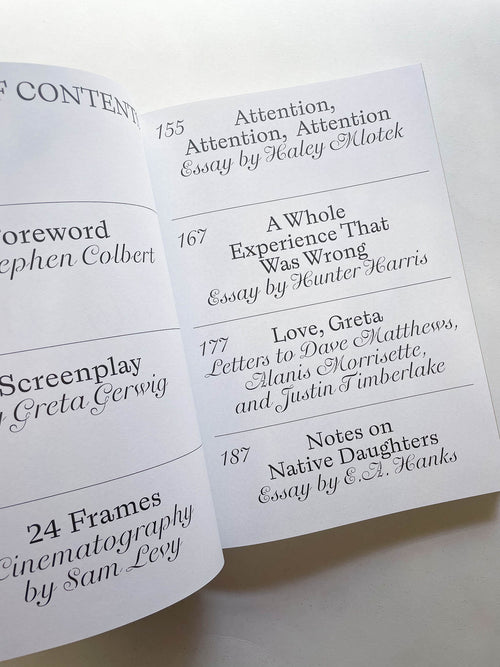 F CONTENT
oreword
ephen Colbert
Screenplay
y Greta Gerwig
24 Frames
Cinematography
by Sam Levy
155
Attention,
Attention, Attention
Essay by Haley Mlotek
167
A Whole
Experience That
Was Wrong
Essay by Hunter Harris
177
Love, Greta
Letters to Dave Matthews,
Alanis Morrisette,
and Justin Timberlake
187
Notes on
Native Daughters
Essay by E.A. Hanks